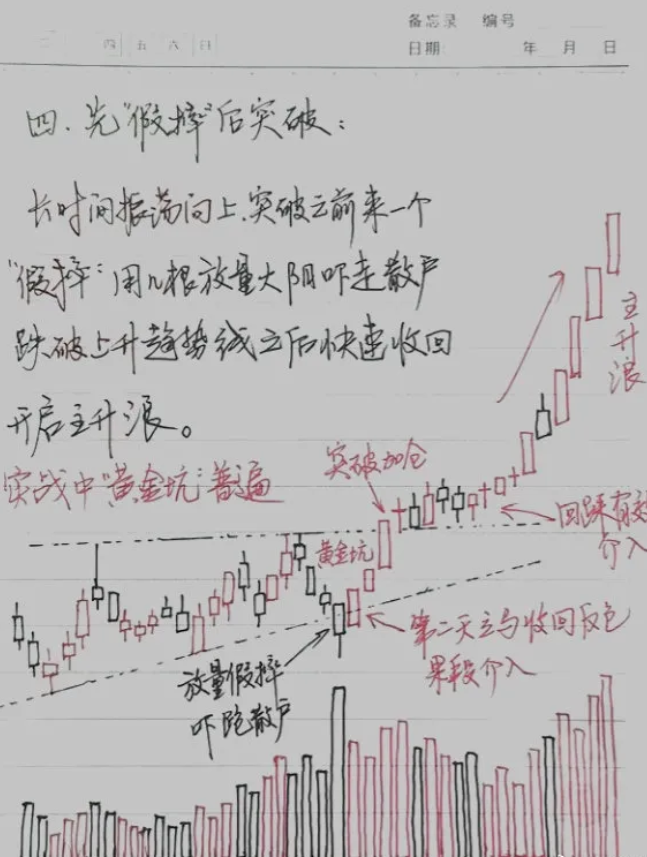 备忘录 编号
四 五 六 日
日期 年 月 日
四、先“假摔”后突破:
长时间振荡向上,突破之前来一个
“假摔”:用几根放量大阴吓走散户
跌破上升趋势线之后快速收回
开启主升浪。
实战中“黄金坑”普遍
主升浪
突破加仓
回踩有效
介入
黄金坑
第二天立马收回反包
果段介入
放量假摔
吓跑散户